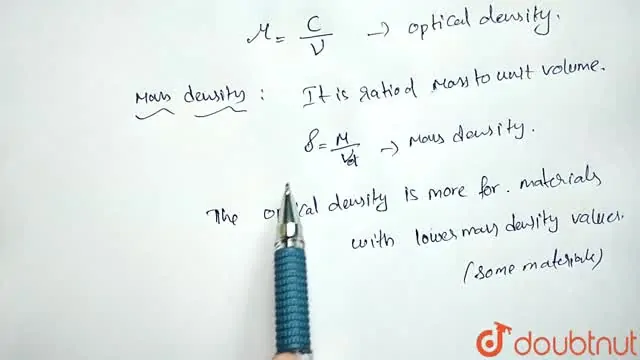 μ = C/V → optical density.
Mass density : It is ratio of mass to unit volume.
δ = M/Vol → mass density.
The optical density is more for materials
with lower mass density values.
(some materials)
doubtnut